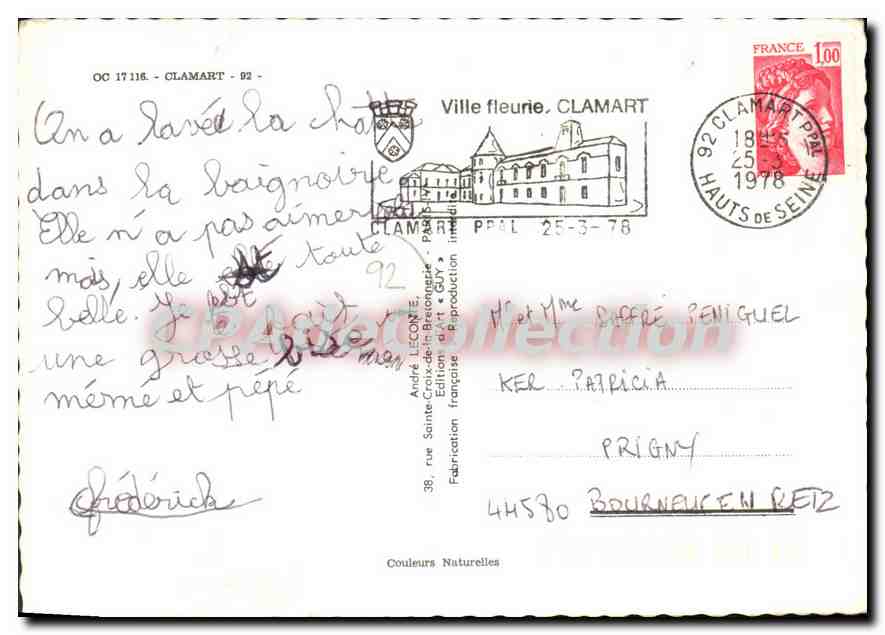 OC 17 116. - CLAMART - 92 -
On a lavé la chatte
dans la baignoire.
Elle n'a pas aimer ça
mais, elle est toute
belle. Je te fait
une grosse bisé
mémé et pépé
Frédérick
92
Ville fleurie. CLAMART
CLAMART PPAL 25-3-78
FRANCE 1,00
92 CLAMART PPAL
18H
25-3
1978
HAUTS DE SEINE
André LECONTE,
38, rue Sainte-Croix-de-la-Bretonnerie - PARIS-IV
Editions d'Art « GUY »
Fabrication française - Reproduction interdite
Mr et Mme SAFFRÉ PENIGUEL
KER PATRICIA
PRIGNY
44580 BOURNEUF EN RETZ
Couleurs Naturelles
CPAsieCollection